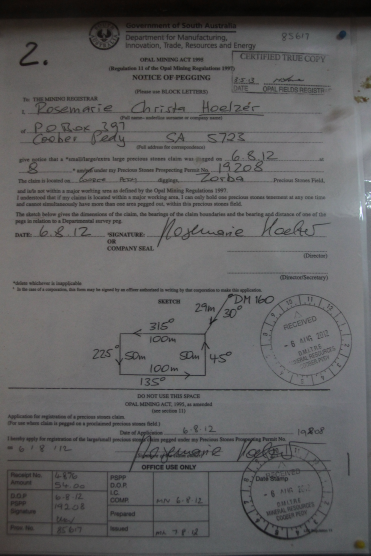 2.
Government of South Australia
Department for Manufacturing,
Innovation, Trade, Resources and Energy
85617
OPAL MINING ACT 1995
(Regulation 11 of the Opal Mining Regulations 1997)
NOTICE OF PEGGING
(Please use BLOCK LETTERS)
CERTIFIED TRUE COPY
DATE OPAL FIELDS REGISTRAR
To THE MINING REGISTRAR
I, Rosemarie Christa Hoelzer
(Full name - underline surname or company name)
of P.O Box 397
Coober Pedy SA 5723
(Full address for correspondence)
give notice that a *small/large/extra large precious stones claim was pegged on 6.8.12 at
8 under my Precious Stones Prospecting Permit No. 19208
The claim is located on Coober Pedy diggings, Zorba Precious Stones Field,
and is/is not within a major working area as defined by the Opal Mining Regulations 1997.
I understand that if my claims is located within a major working area, I can only hold one precious stones tenement at any one time
and cannot simultaneously have more than one area pegged out, within this precious stones field.
The sketch below gives the dimensions of the claim, the bearings of the claim boundaries and the bearing and distance of one of the
pegs in relation to a Departmental survey peg.
DATE: 6.8.12 *SIGNATURE: Rosemarie Hoelzer
OR
COMPANY SEAL
(Director)
(Director/Secretary)
*delete whichever is inapplicable
* In the case of a corporation, this form may be signed by an officer authorised in writing by that corporation to make this application.
SKETCH
DM 160
29m 30°
315°
100m
225° 50m 50m 45°
100m
135°
RECEIVED
- 6 AUG 2012
DMITRE
MINERAL RESOURCES
COOBER PEDY
DO NOT USE THIS SPACE
OPAL MINING ACT, 1995, as amended
(see section 11)
Application for registration of a precious stones claim.
(For use where claim is pegged on a proclaimed precious stones field.)
Date of Application 6.8.12
I hereby apply for registration of the large/small precious stones claim pegged under Precious Stones Prospecting Permit No. 19208
on 6.8.12
Rosemarie Hoelzer
OFFICE USE ONLY
Receipt No. 6876
Amount 94.00
D.O.P 6.8.12
PSPP 19208
Signature
Prov. No. 85617
PSPP
D.O.P.
I.C.
COMP. 6.8.12
Prepared
Issued 7.8.12
Date Stamp
RECEIVED
DMITRE
MINERAL RESOURCES
COOBER PEDY